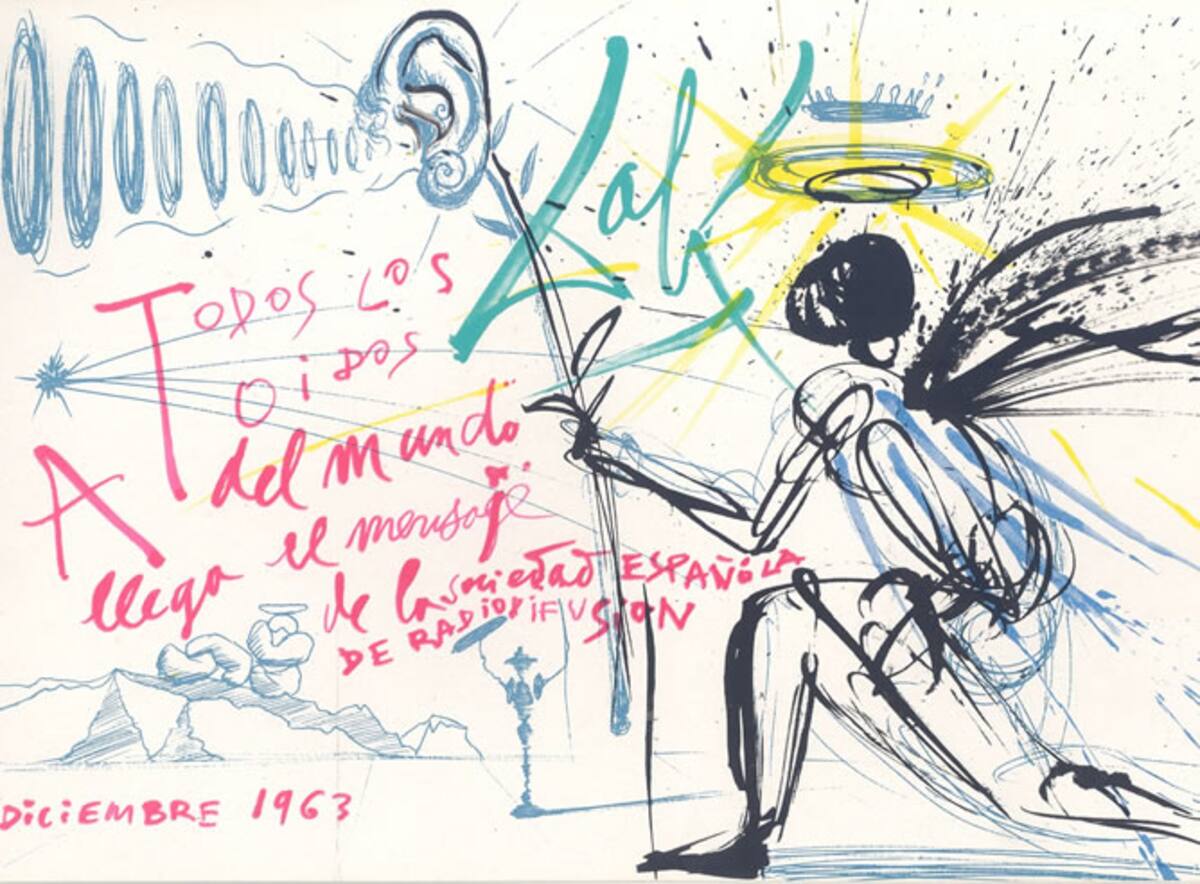 A TODOS LOS
OIDOS
del mundo
llega el mensaje
de la sociedad ESPAÑOLA
DE RADIODIFUSION
DICIEMBRE 1963